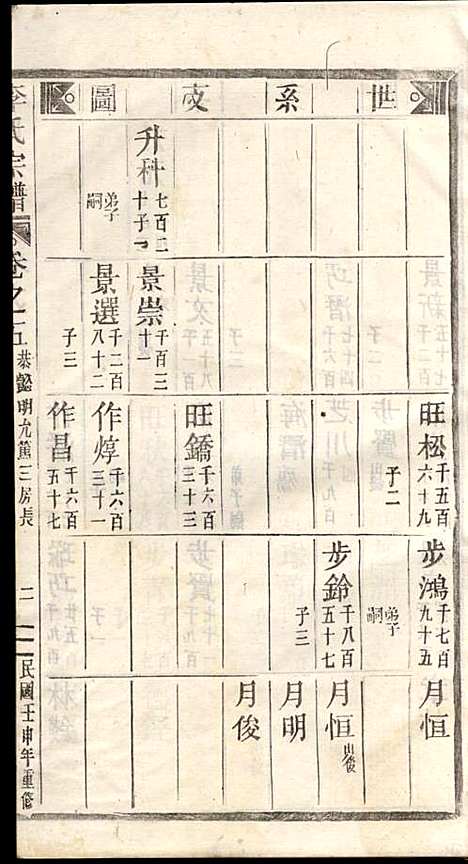 世系支圖
升科 七百二十子一
弟子嗣
景崇 千百三十一
景選 千二百八十二
子三
旺松 千五百六十九
子二
旺鐈 千六百三十三
作焞 千六百三十一
作昌 千六百五十七
步鴻 千七百九十五
弟子嗣
步鈴 千八百五十七
子三
月恒
月恒 出後
月明
月俊
李氏宗譜
卷之二五 恭懿明允篤三房長
二
民國壬申年重修